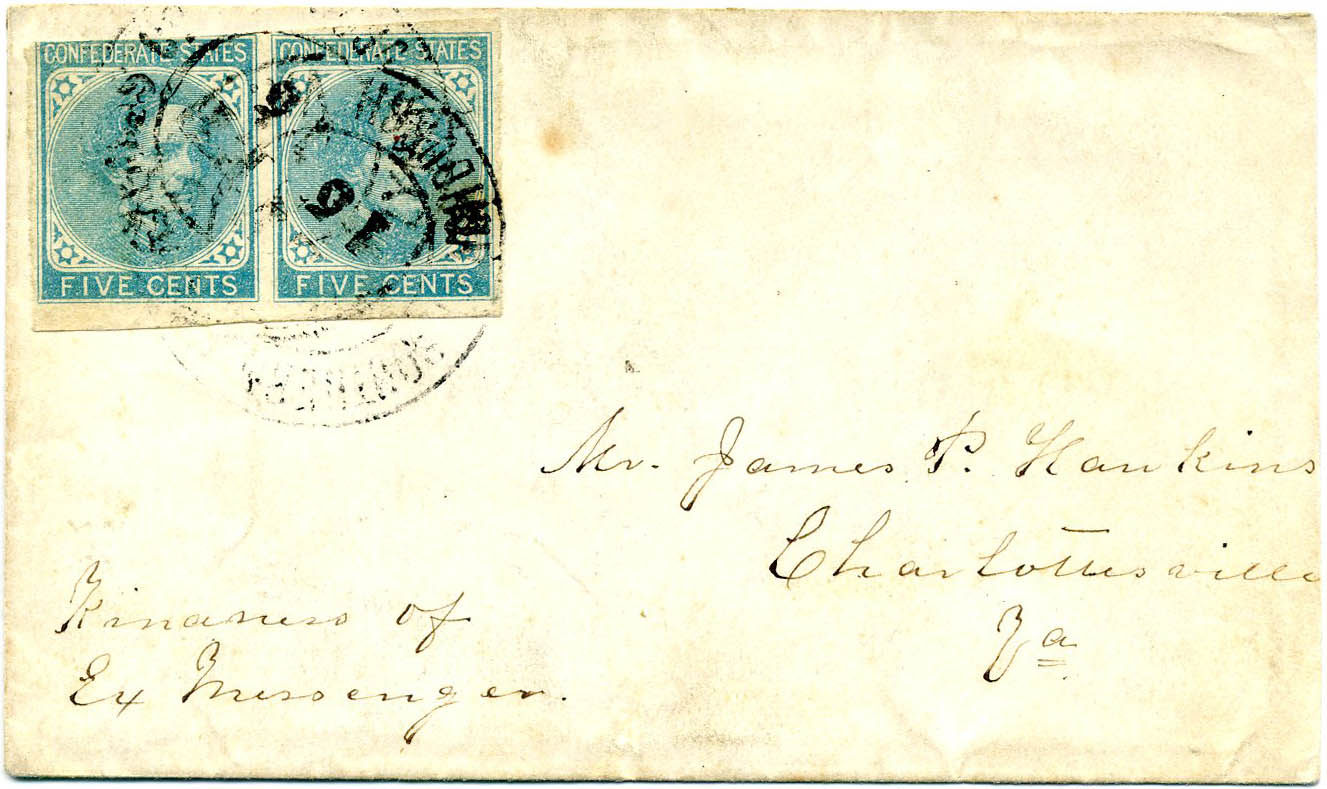 CONFEDERATE STATES
FIVE CENTS
CONFEDERATE STATES
FIVE CENTS
16
Mr. James P. Hankins
Charlottesville
Va
Kindness of
Ex Messenger.